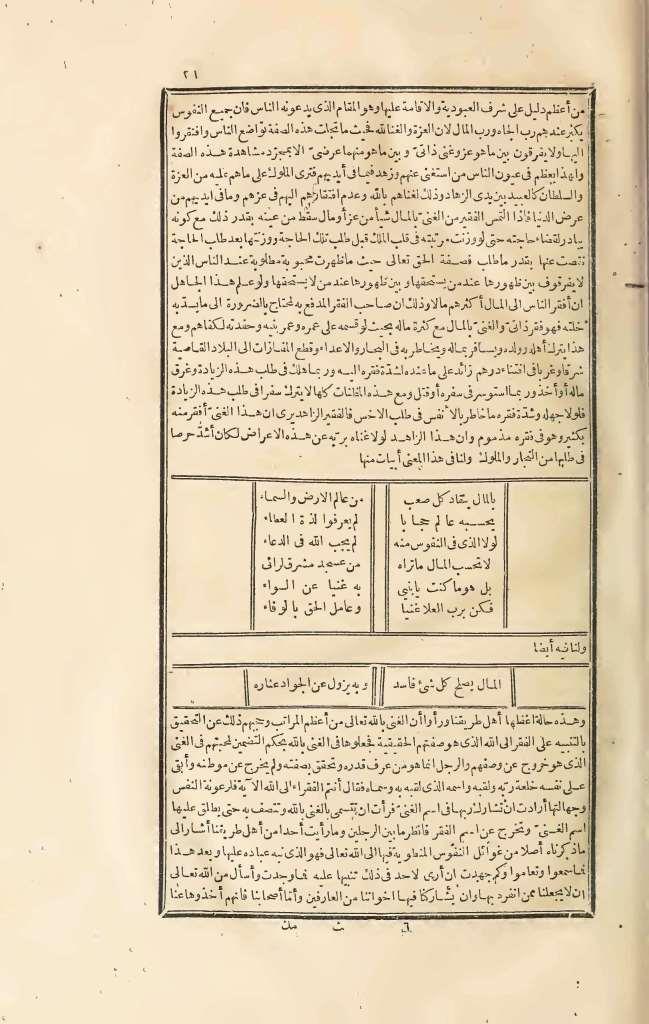 ٢١
من أعظم دليل على شرف العبودية والاقامة عليها وهو المقام الذى يدعونه الناس فان جميع النفوس
يكبر عندهم رب الجاه ورب المال لان العزة والغنا لله فحيث ما تجلت هذه الصفة تواضع الناس وافتقروا
اليها ولا يفرقون بين ما هو عز وغنى ذاتى وبين ما هو منهما عرضى الا بمجرّد مشاهدة هذه الصفة
ولهذا يعظم فى عيون الناس من استغنى عنهم وزهد فيما فى أيديهم فترى الملوك على ما هم عليه من العزة
والسلطان كالعبيد بين يدى الزهاد وذلك لغناهم بالله وعدم افتقارهم اليهم فى عزهم وما فى أيديهم من
عرض الدنيا فاذا التمس الفقير من الغنىّ بالمال شيأ من عز أو مال سقط من عينه بقدر ذلك مع كونه
يبادر لقضاء حاجته حتى لو وزنت مرتبته فى قلب الملك قبل طلب تلك الحاجة ووزنتها بعد طلب الحاجة
نقصت عنها بقدر ما طلب فصفة الحق تعالى حيث ما ظهرت محبوبة مطلوبة عند الناس الذين
لا يفرقوف بين ظهورها عند من يستحقها وبين ظهورها عند من لا يستحقها ولو علم هذا الجاهل
ان أفقر الناس الى المال أكثرهم مالا وذلك ان صاحب الفقر المدقع به محتاج بالضرورة الى ما يسدّ به
خلته فهو فقر ذاتىّ والغنىّ بالمال مع كثرة ماله بحيث لو قسمه على عمره وعمر بنيه وحفدته لكفاهم ومع
هذا يترك أهله وولده ويسافر بماله ويخاطر به فى البحار والاعداء وقطع المفازات الى البلاد القاصة
شرقا وغربا فى اقتناء درهم زائد على ما عنده لشدّة فقره اليه وربما هلك فى طلب هذه الزيادة وغرق
ماله أو أخذ وربما استوسر فى سفره أو قتل ومع هذه المقانات كلها لا يترك سفرا فى طلب هذه الزيادة
فلولا جهله وشدّة فقره ما خاطر بالانفس فى طلب الاخس فالفقير الزاهد يرى ان هذا الغنىّ أفقر منه
بكثير وهو فى فقره مذموم وان هذا الزاهد لولا غناه بربه عن هذه الاعراض لكان أشدّ حرصا
فى طلبها من التجار والملوك ولنا فى هذا المعنى أبيات منها
بالمال ينقاد كل صعب من عالم الارض والسماء
يحسبه عالم حجابا لم يعرفوا لذة العطاء
لولا الذى فى النفوس منه لم يجب الله فى الدعاء
لا تحسب المال ما تراه من عسجد مشرق لرائى
بل هو ما كنت يا بنيى به غنيا عن السواء
فكن برب العلا غنيا وعامل الحق بالوفاء
ولنا فيه أيضا
المال يصلح كل شئ فاسد وبه يزول عن الجواد عثاره
وهذه حالة أغفلها أهل طريقنا ورأوا أن الغنى بالله تعالى من أعظم المراتب وحجبهم ذلك عن التحقيق
بالتنبيه على الفقر الى الله الذى هو صفتهم الحقيقية فجعلوها فى الغنى بالله بحكم التضمين لمحبتهم فى الغنى
الذى هو خروج عن وصفهم والرجل انما هو من عرف قدره وتحقق بصفته ولم يخرج عن موطنه وأبقى
على نفسه خلعة ربه ولقبه واسمه الذى لقبه به وسماه فقال أنتم الفقراء الى الله الآية فلرعونة النفس
وجهالتها أرادت ان تشارك ربها فى اسم الغنىّ فرأت ان تتسمى بالغنى بالله وتتصف به حتى يطلق عليها
اسم الغنىّ وتخرج عن اسم الفقر فانظر ما بين الرجلين وما رأيت أحدا من أهل طريقنا أشار الى
ما ذكرناه أصلا من غوائل النفوس المنطوية فيها الى الله تعالى فهو الذى نبه عباده عليها وبعد هذا
فما سمعوا وتعاموا وكم جهدت ان أرى لاحد فى ذلك تنبيها عليه فما وجدت وأسأل من الله تعالى
ان لا يجعلنا ممن انفرد بها وان يشاركنا فيها اخواننا من العارفين وأما أصحابنا فانهم أخذوها عنا
٦ ث مك